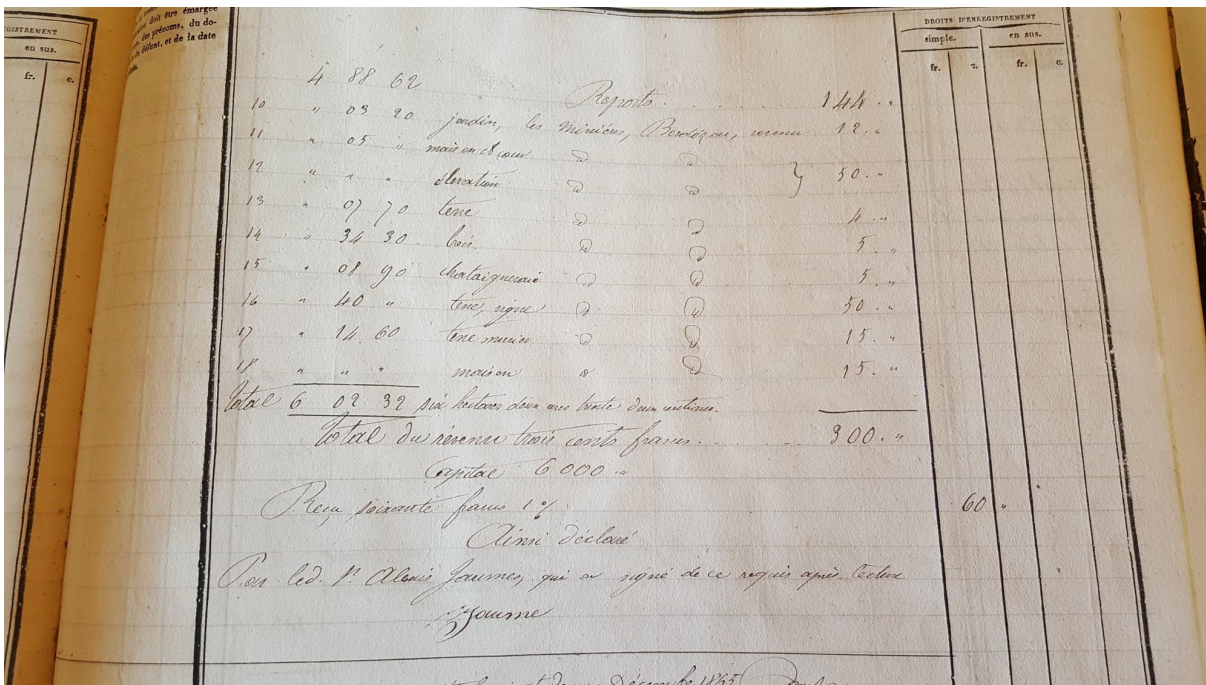 GISTREMENT
en sus.
fr. c.
doit être émargée
des prénoms, du do-
défunt, et de la date
DROITS D'ENREGISTREMENT
simple. en sus.
fr. c. fr. c.
4 88 62 Reports 144 "
10 " 03 20 jardin, les Minières, revenu 12 "
11 " 05 " maison & cour d° d°
12 " " " élevation d° d° } 50 "
13 " 07 70 terre d° d° 4 "
14 " 34 30 bois d° d° 5 "
15 " 08 90 chataigneraie d° d° 5 "
16 " 40 " terre, vigne d° d° 50 "
17 " 14 60 terre murier d° d° 15 "
18 " " " maison d° d° 15 "
Total 6 02 32 six hectares deux ares trente deux centiares.
Total du revenu trois cents francs 300 "
Capital 6000 "
Reçu soixante francs 1 % 60 "
Ainsi déclaré
Par led. Sr Alexis Jaumes, qui a signé de ce requis après lecture
Jaume
Décembre 1865